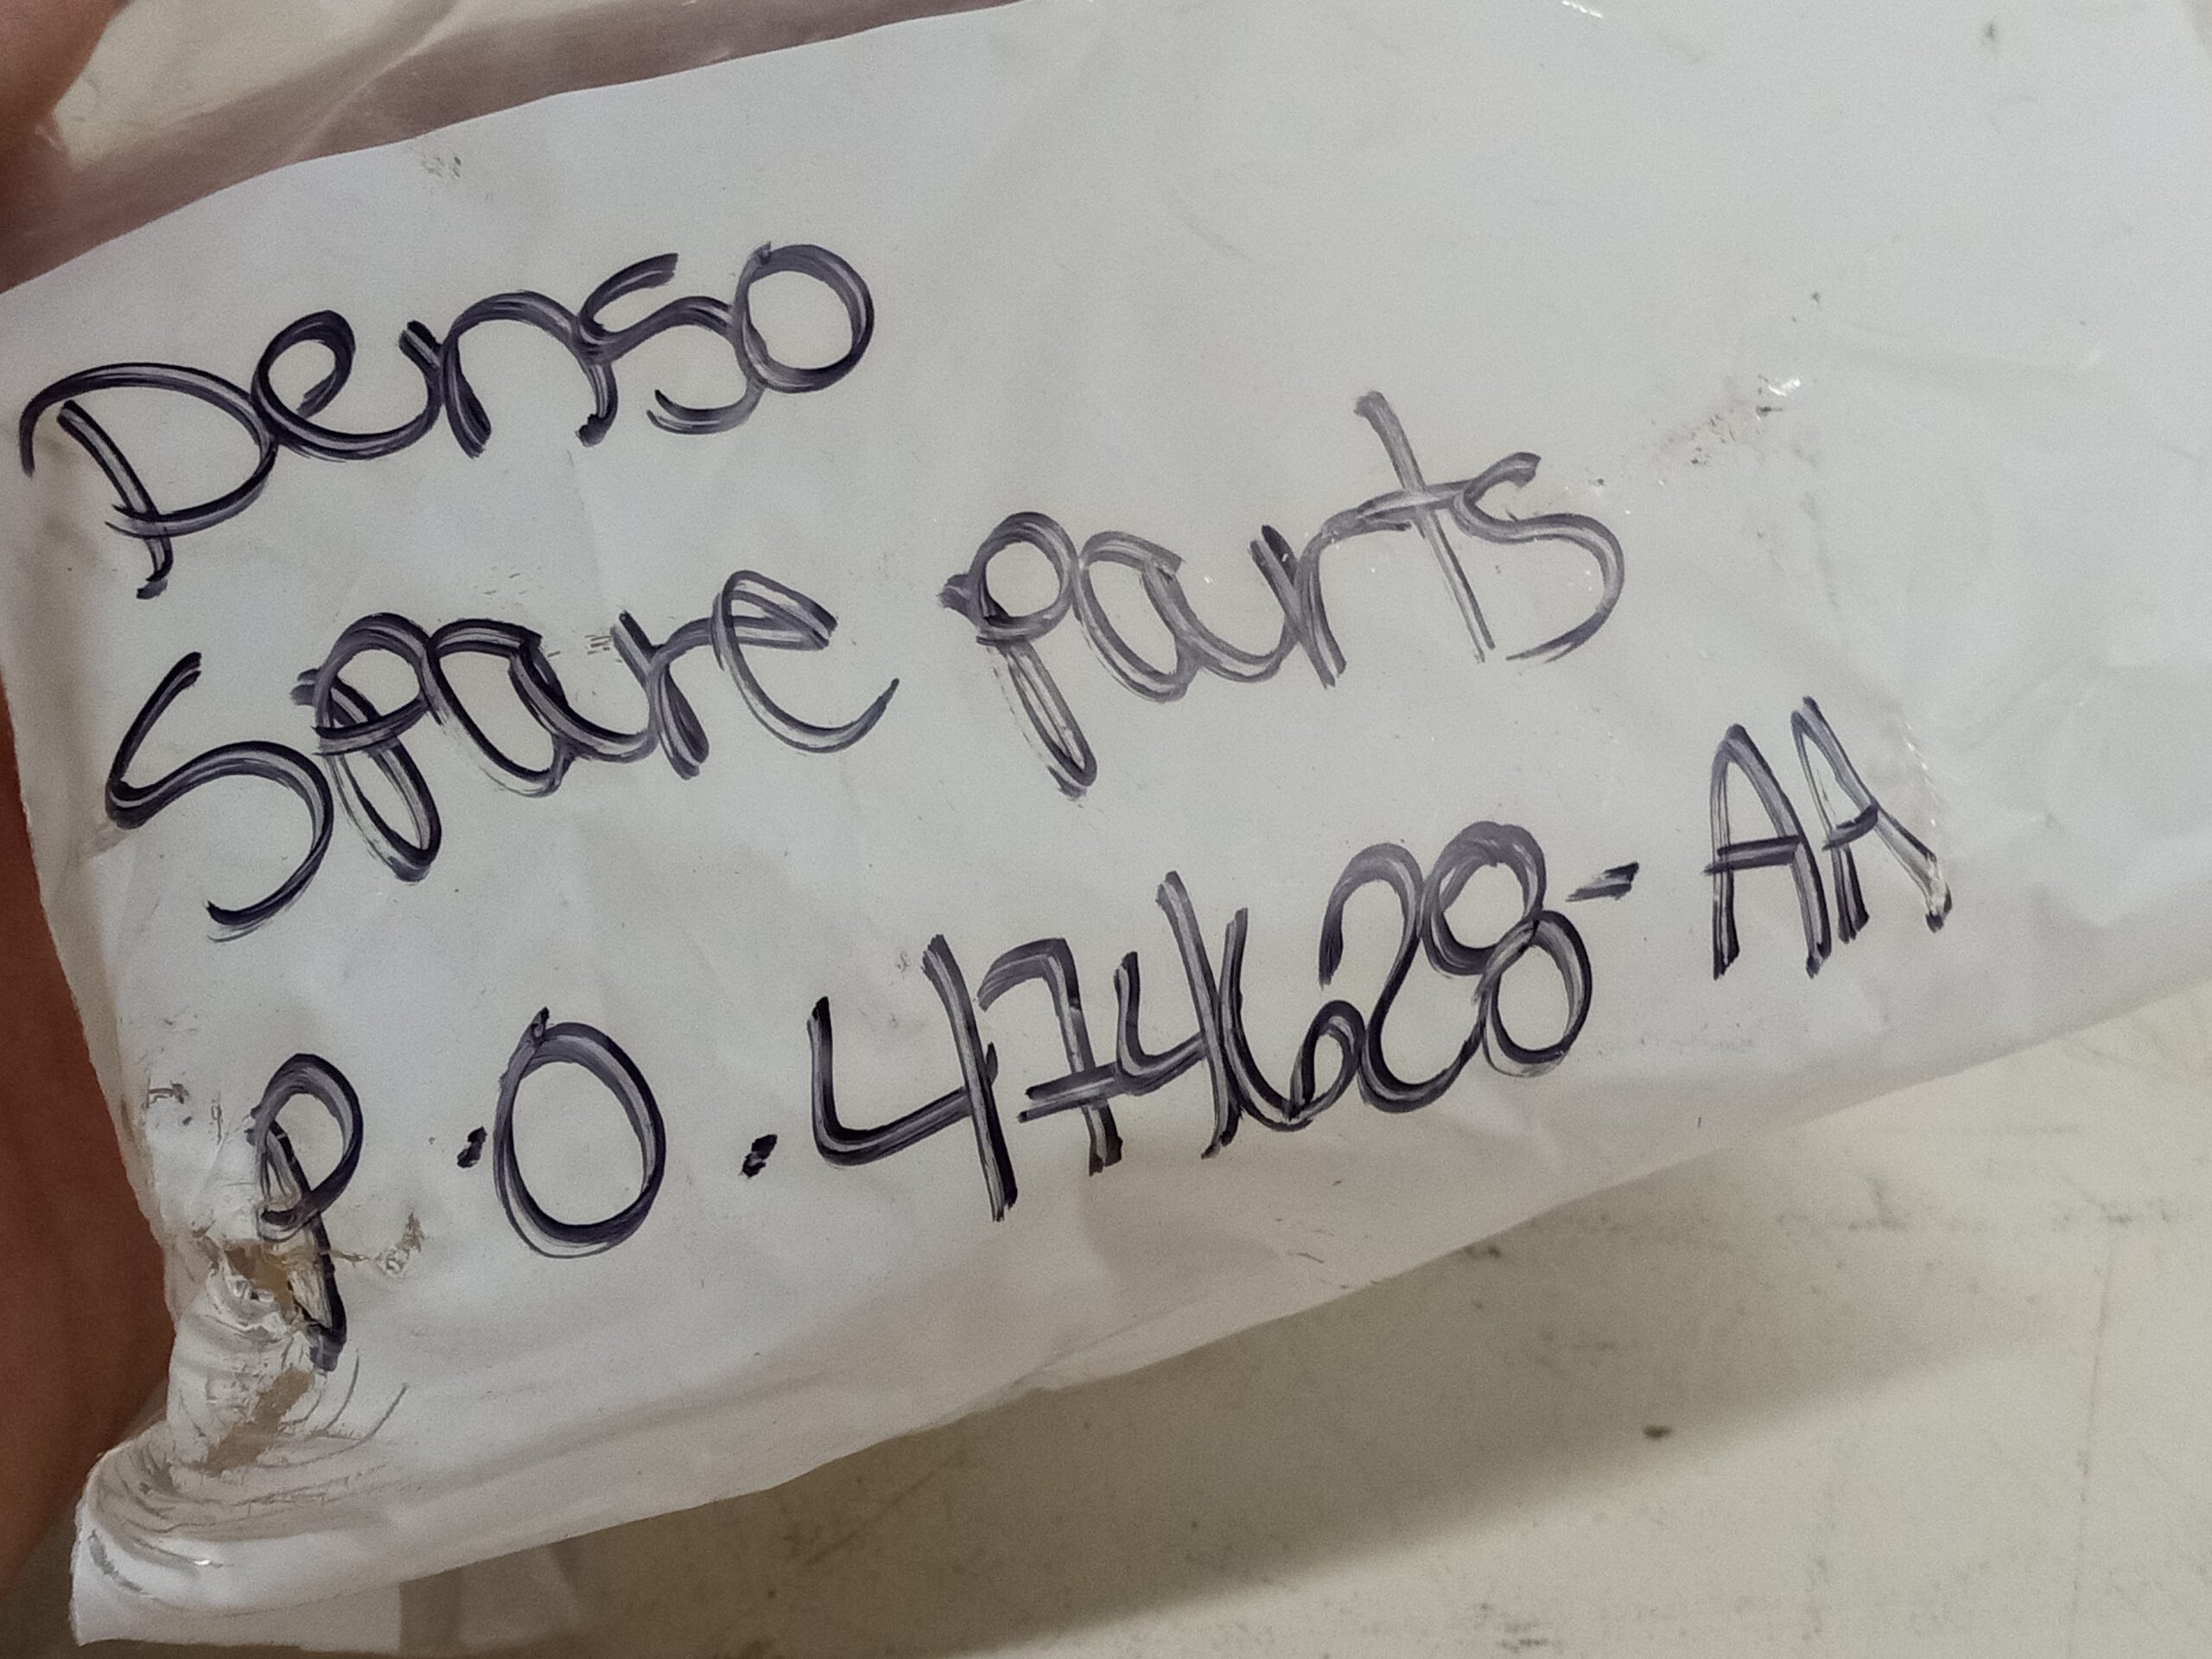 Denso
Spare parts
P.O. 474628-AA